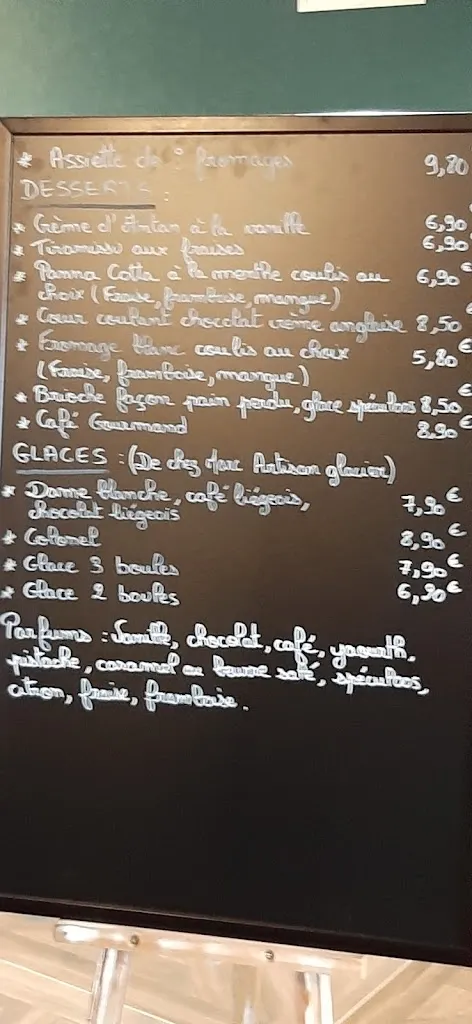 * Assiette de fromages 9,80
DESSERTS :
* Crème d'Antan à la vanille 6,90
* Tiramissu aux fraises 6,90
* Panna Cotta à la menthe coulis au 6,90€
choix (Fraise, framboise, mangue)
* Coeur coulant chocolat crème anglaise 8,50
* Fromage blanc coulis au choix 5,80€
(Fraise, framboise, mangue)
* Brioche façon pain perdu, glace spéculoos 8,50€
* Café Gourmand 8.90€
GLACES : (De chez Marc Artisan glacier)
* Dame blanche, café liégeois, 7,90€
chocolat liégeois
* Colonel 8,90€
* Glace 3 boules 7,90€
* Glace 2 boules 6,90€
Parfums : Vanille, chocolat, café, yaourth,
pistache, caramel au beurre salé, spéculoos,
citron, fraise, framboise.